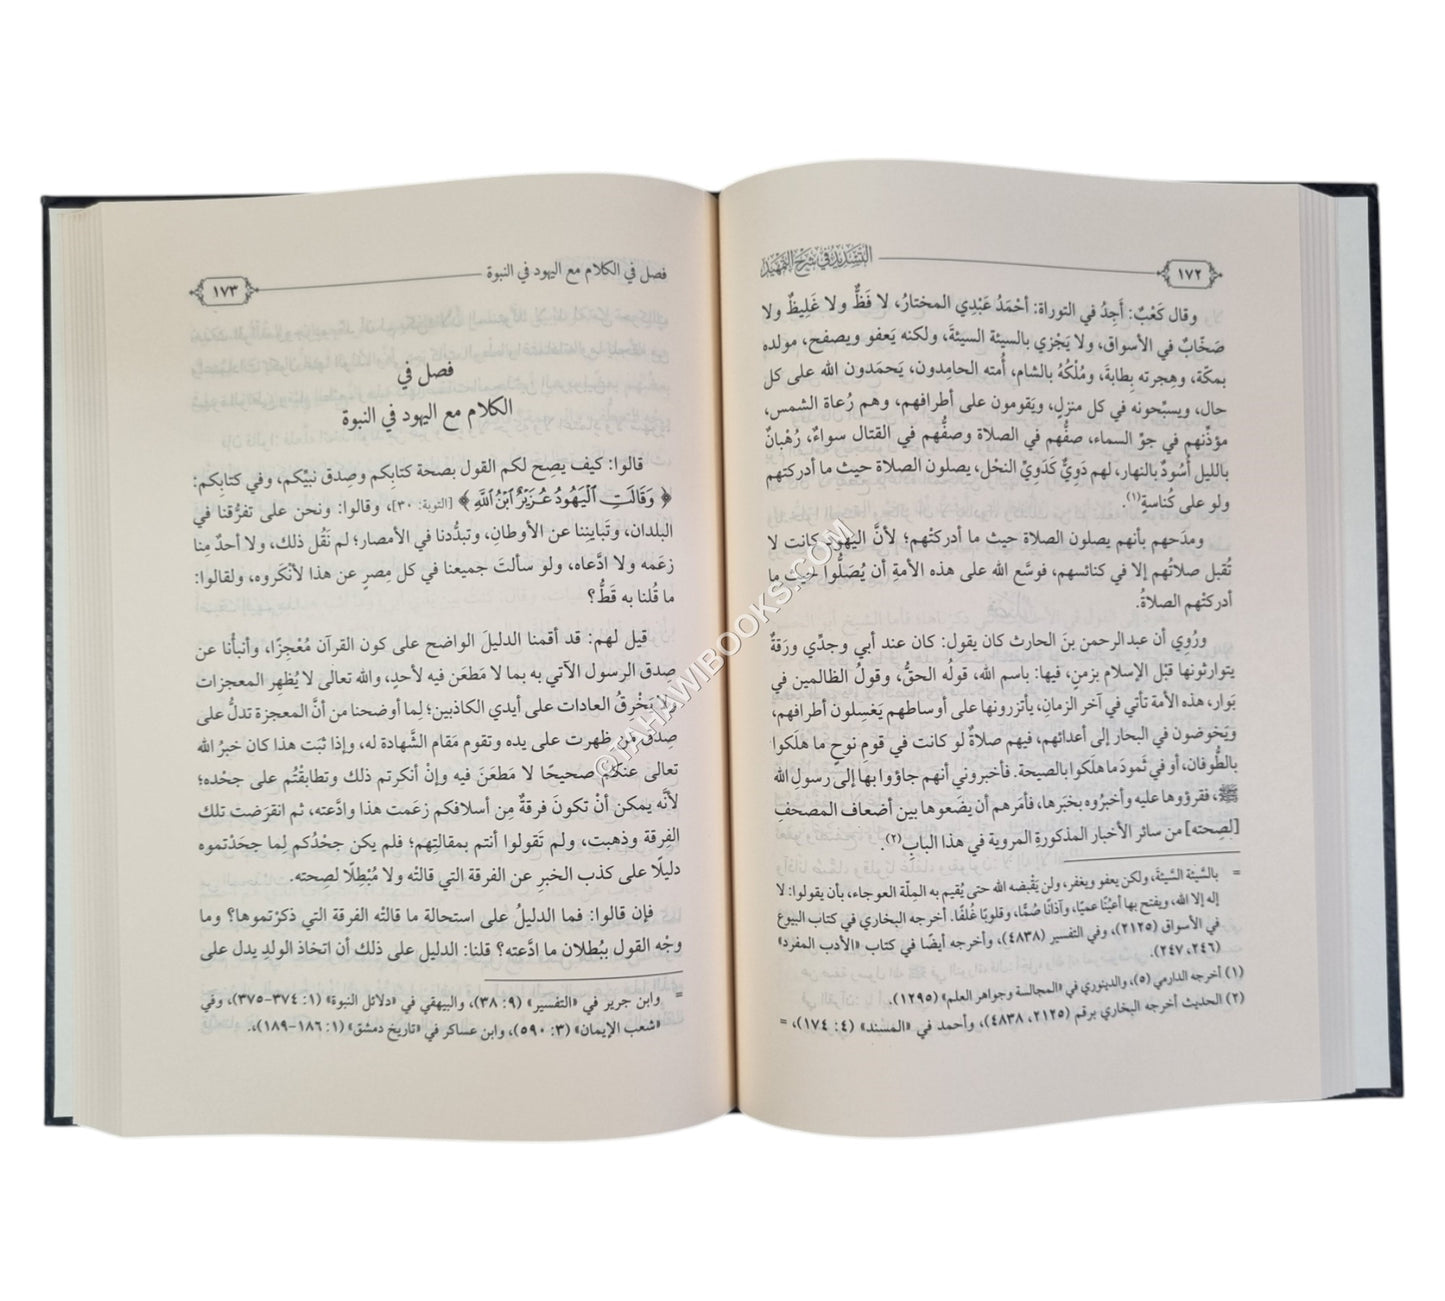 التسديد في شرح التمهيد
١٧٢
وقال كَعْبٌ: أَجِدُ في التوراة: أحْمَدُ عَبْدِي المختارُ، لا فَظٌّ ولا غَلِيظٌ ولا
صَخّابٌ في الأسواق، ولا يَجْزي بالسيئة السيئةَ، ولكنه يَعفو ويصفح، مولده
بمكّة، وهِجرته بِطابةَ، ومُلْكُهُ بالشام، أُمته الحامِدون، يَحمَدون الله على كل
حال، ويسبِّحونه في كل منزلٍ، ويَقومون على أطرافهم، وهم رُعاة الشمس،
مؤذِّنهم في جوّ السماء، صفُّهم في الصلاة وصفُّهم في القتال سواءٌ، رُهْبانٌ
بالليل أُسُودٌ بالنهار، لهم دَوِيٌّ كَدَوِيِّ النحْل، يصلون الصلاة حيث ما أدركتهم
ولو على كُناسةٍ(١).
ومدَحهم بأنهم يصلون الصلاة حيث ما أدركتْهم؛ لأنَّ اليهود كانت لا
تُقبل صلاتُهم إلا في كنائسهم، فوسَّع الله على هذه الأمةِ أن يُصَلُّوا حيث ما
أدركتْهم الصلاةُ.
ورُوِي أن عبدالرحمن بنَ الحارث كان يقول: كان عند أبي وجدِّي ورَقةٌ
يتوارثونها قبْل الإسلام بزمنٍ، فيها: باسم الله، قولُه الحقُّ، وقولُ الظالمين في
بَوار، هذه الأمة تأتي في آخر الزمانِ، يأتزرونها على أوساطهم يَغسِلون أطرافهم،
ويَخوضون في البحار إلى أعدائهم، فيهم صلاةٌ لو كانت في قومِ نوحٍ ما هلَكوا
بالطُّوفان، أو في ثمودَ ما هلَكوا بالصيحة. فأخبروني أنهم جاؤوا بها إلى رسولِ الله
ﷺ، فقرؤوها عليه وأخبرُوه بخبَرها، فأمَرهم أن يضَعوها بين أضعاف المصحفِ
[لصِحته] من سائر الأخبار المذكورةِ المروية في هذا البابِ(٢).
= بالسَّيئة السَّيئةَ، ولكن يعفو ويغفر، ولن يَقْبضه الله حتى يُقيم به المِلّة العوجاء، بأن يقولوا: لا
إله إلا الله، ويفتح بها أعيُنًا عميًا، وآذانًا صُمًّا، وقلوبًا غُلفًا. أخرجه البخاري في كتاب البيوع
في الأسواق (٢١٢٥)، وفي التفسير (٤٨٣٨)، وأخرجه أيضًا في كتاب «الأدب المفرد»
(٢٤٦، ٢٤٧).
(١) أخرجه الدارمي (٥)، والدينوري في «المجالسة وجواهر العلم» (١٢٩٥).
(٢) الحديث أخرجه البخاري برقم (٢١٢٥، ٤٨٣٨)، وأحمد في «المسند» (٤: ١٧٤)، =
فصل في الكلام مع اليهود في النبوة
١٧٣
فصل في
الكلام مع اليهود في النبوة
قالوا: كيف يصِح لكم القول بصحة كتابِكم وصِدق نبيِّكم، وفي كتابِكم:
﴿وَقَالَتِ ٱلْيَهُودُ عُزَيْرٌ ٱبْنُ ٱللَّهِ﴾ [التوبة: ٣٠]، وقالوا: ونحن على تفرُّقنا في
البلدان، وتَبايننا عن الأوطانِ، وتبدُّدنا في الأمصار؛ لم نَقُل ذلك، ولا أحدٌ مِنا
زعَمه ولا ادَّعاه، ولو سألتَ جميعنا في كل مِصرٍ عن هذا لأنْكَروه، ولقالوا:
ما قُلنا به قَطُّ؟
قيل لهم: قد أقمنا الدليلَ الواضح على كون القرآن مُعْجِزًا، وأنبأْنا عن
صدق الرسول الآتي به بما لا مَطعَن فيه لأحدٍ، والله تعالى لا يُظهر المعجزات
ولا يَخْرِقُ العادات على أيدي الكاذبين؛ لِما أوضحنا من أنَّ المعجزة تدلُّ على
صِدق من ظهرت على يده وتقوم مَقام الشَّهادة له، وإذا ثبَت هذا كان خبرُ الله
تعالى عنكم صحيحًا لا مَطعَنَ فيه وإنْ أنكرتم ذلك وتطابقْتُم على جحْده؛
لأنَّه يمكن أنْ تكونَ فرقةٌ مِن أسلافكم زعَمت هذا وادَّعته، ثم انقرَضت تلك
الفِرقة وذهبت، ولم تَقولوا أنتم بمقالتِهم؛ فلم يكن جحْدُكم لِما جحَدْتموه
دليلًا على كذب الخبرِ عن الفرقة التي قالتْه ولا مُبْطِلًا لصِحته.
فإن قالوا: فما الدليلُ على استحالة ما قالتْه الفرقة التي ذكرْتموها؟ وما
وجْه القول ببُطلان ما ادَّعته؟ قلنا: الدليل على ذلك أن اتخاذ الولدِ يدل على
= وابن جرير في «التفسير» (٩: ٣٨)، والبيهقي في «دلائل النبوة» (١: ٣٧٤-٣٧٥)، وفي
«شعب الإيمان» (٣: ٥٩٠)، وابن عساكر في «تاريخ دمشق» (١: ١٨٦-١٨٩)،.
©TAHAWIBOOKS.COM